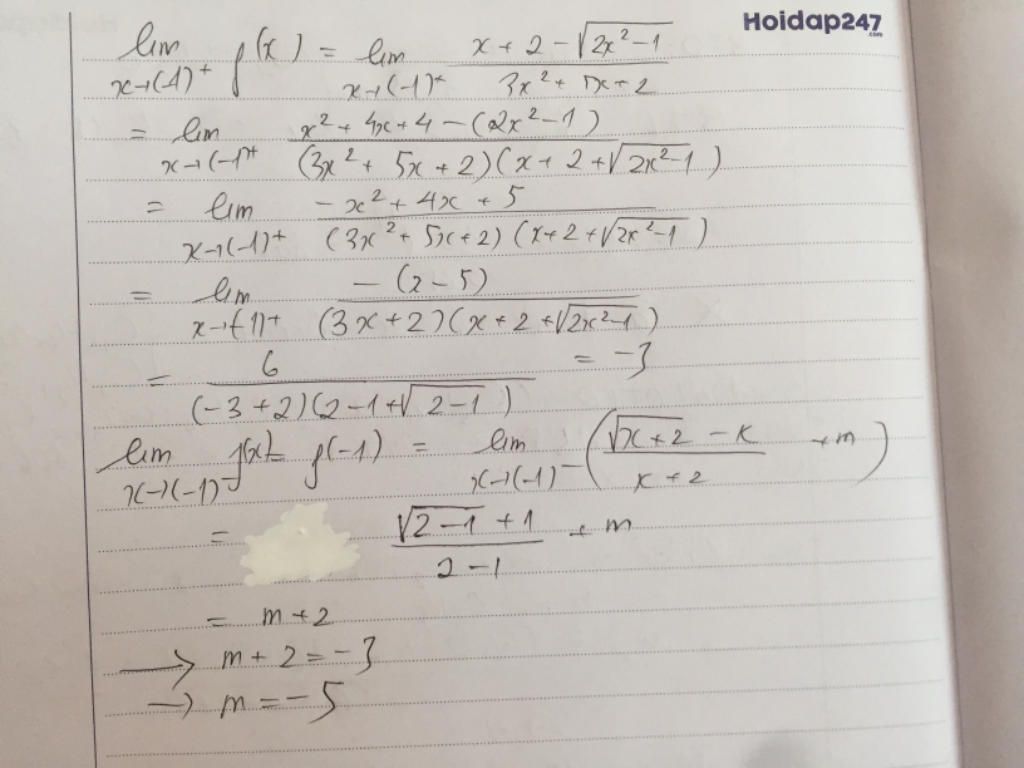 Hoidap247
.com
lim x→(-1)⁺ f(x) = lim x→(-1)⁺ (x + 2 - √(2x² - 1)) / (3x² + 5x + 2)
= lim x→(-1)⁺ (x² + 4x + 4 - (2x² - 1)) / ((3x² + 5x + 2)(x + 2 + √(2x² - 1)))
= lim x→(-1)⁺ (-x² + 4x + 5) / ((3x² + 5x + 2)(x + 2 + √(2x² - 1)))
= lim x→(-1)⁺ -(x - 5) / ((3x + 2)(x + 2 + √(2x² - 1)))
= 6 / ((-3 + 2)(2 - 1 + √(2 - 1))) = -3
lim x→(-1)⁻ f(x) = f(-1) = lim x→(-1)⁻ ((√(x + 2) - x) / (x + 2) + m)
= (√(2 - 1) + 1) / (2 - 1) + m
= m + 2
→ m + 2 = -3
→ m = -5